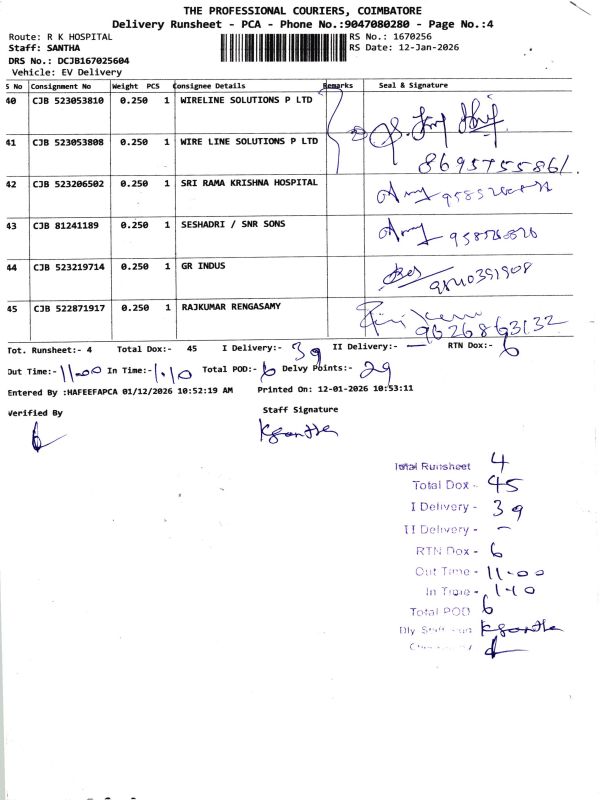 THE PROFESSIONAL COURIERS, COIMBATORE
Delivery Runsheet - PCA - Phone No.:9047080280 - Page No.:4
Route: R K HOSPITAL RS No.: 1670256
Staff: SANTHA RS Date: 12-Jan-2026
DRS No.: DCJB167025604
Vehicle: EV Delivery
S No Consignment No Weight PCS Consignee Details Remarks Seal & Signature
40 CJB 523053810 0.250 1 WIRELINE SOLUTIONS P LTD
41 CJB 523053808 0.250 1 WIRE LINE SOLUTIONS P LTD
8695755861
42 CJB 523206502 0.250 1 SRI RAMA KRISHNA HOSPITAL
43 CJB 81241189 0.250 1 SESHADRI / SNR SONS
44 CJB 523219714 0.250 1 GR INDUS 9840391908
45 CJB 522871917 0.250 1 RAJKUMAR RENGASAMY
9626863132
Tot. Runsheet:- 4 Total Dox:- 45 I Delivery:- 39 II Delivery:- — RTN Dox:- 6
Out Time:- 11-00 In Time:- 1.10 Total POD:- 6 Delvy Points:- 29
Entered By :HAFEEFAPCA 01/12/2026 10:52:19 AM Printed On: 12-01-2026 10:53:11
Verified By Staff Signature
Total Runsheet 4
Total Dox - 45
I Delivery - 39
II Delivery - -
RTN Dox - 6
Out Time - 11-00
In Time - 1-10
Total POD 6
Dly